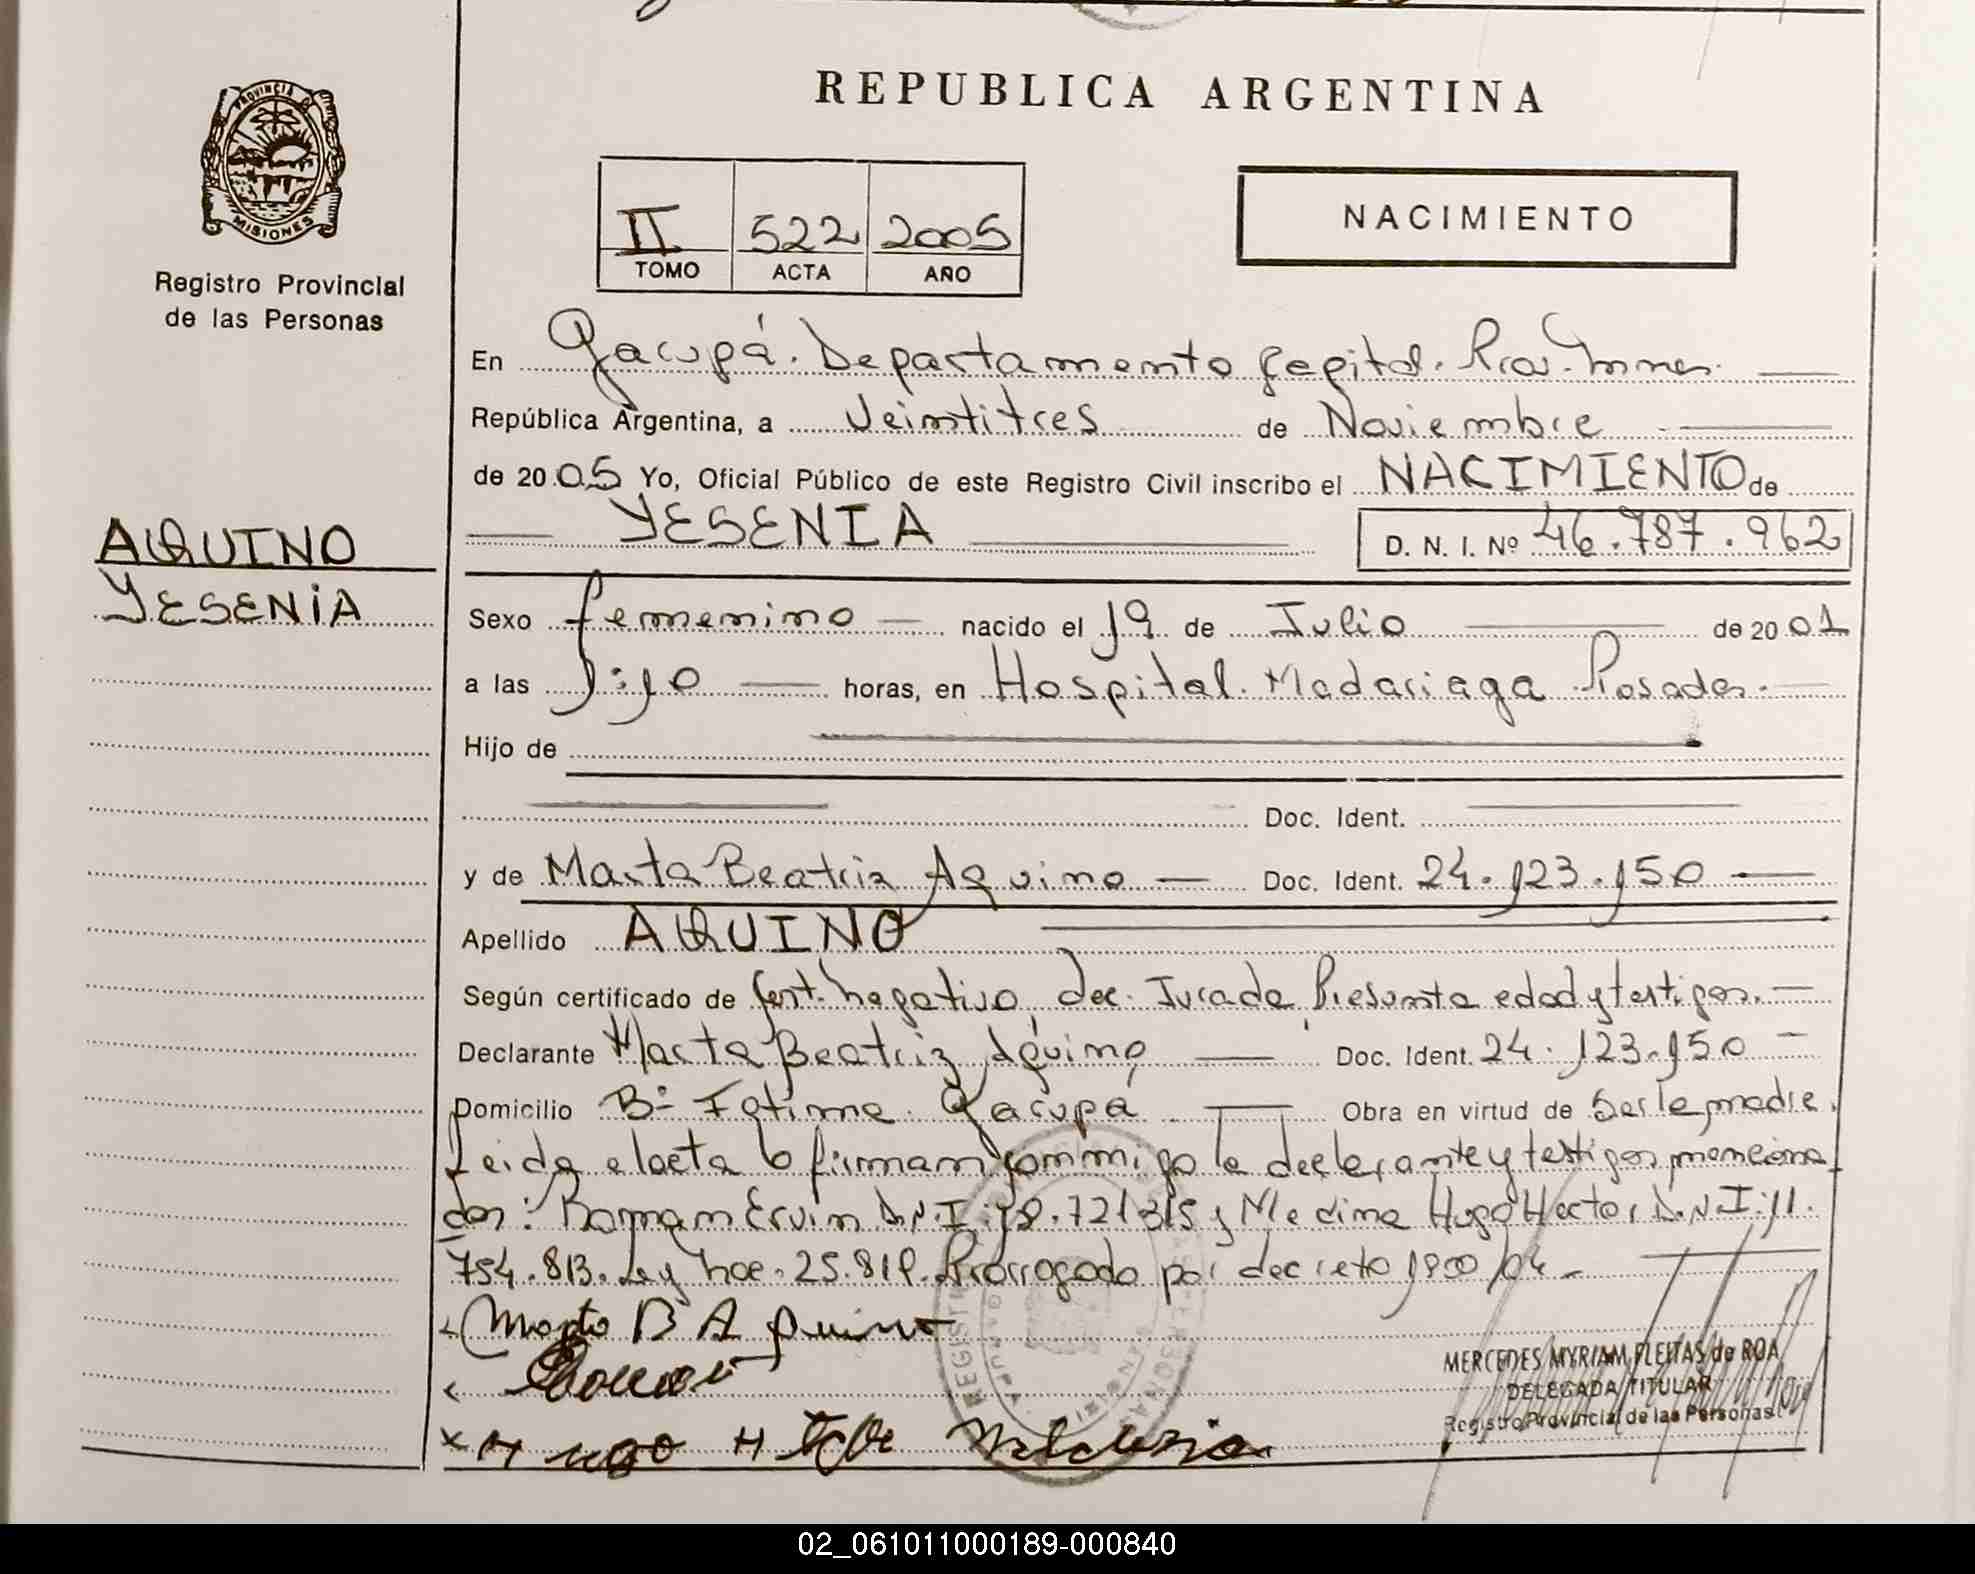 REPUBLICA ARGENTINA
PROVINCIA DE
MISIONES
Registro Provincial
de las Personas
II 522 2005
TOMO ACTA AÑO
NACIMIENTO
En Garupá. Departamento Capital. Pcia. Mnes.
República Argentina, a Veintitres de Noviembre
de 2005 Yo, Oficial Público de este Registro Civil inscribo el NACIMIENTO de
YESENIA D. N. I. Nº 46.787.962
AQUINO
YESENIA
Sexo femenino nacido el 19 de Julio de 2001
a las 1:10 horas, en Hospital Madariaga Posadas.
Hijo de
Doc. Ident.
y de Marta Beatriz Aquino Doc. Ident. 24.123.150
Apellido AQUINO
Según certificado de Cert. Negativo Dec. Jurada Presunta edad y testigos.
Declarante Marta Beatriz Aquino Doc. Ident. 24.123.150
Domicilio Bº Fatima. Garupá Obra en virtud de Ser la madre.
Leida el acta la firman conmigo la declarante y testigos menciona
dos: Ervin D.N.I: 18.721315 y Medina Hugo Hector D.N.I: 11.
754.813. Ley Nac. 25.819. Prorrogada por decreto 1900/04
Marta B Aquino
x Hugo H
MERCEDES MYRIAM FLEITAS de ROA
DELEGADA TITULAR
Registro Provincial de las Personas
02_061011000189-000840